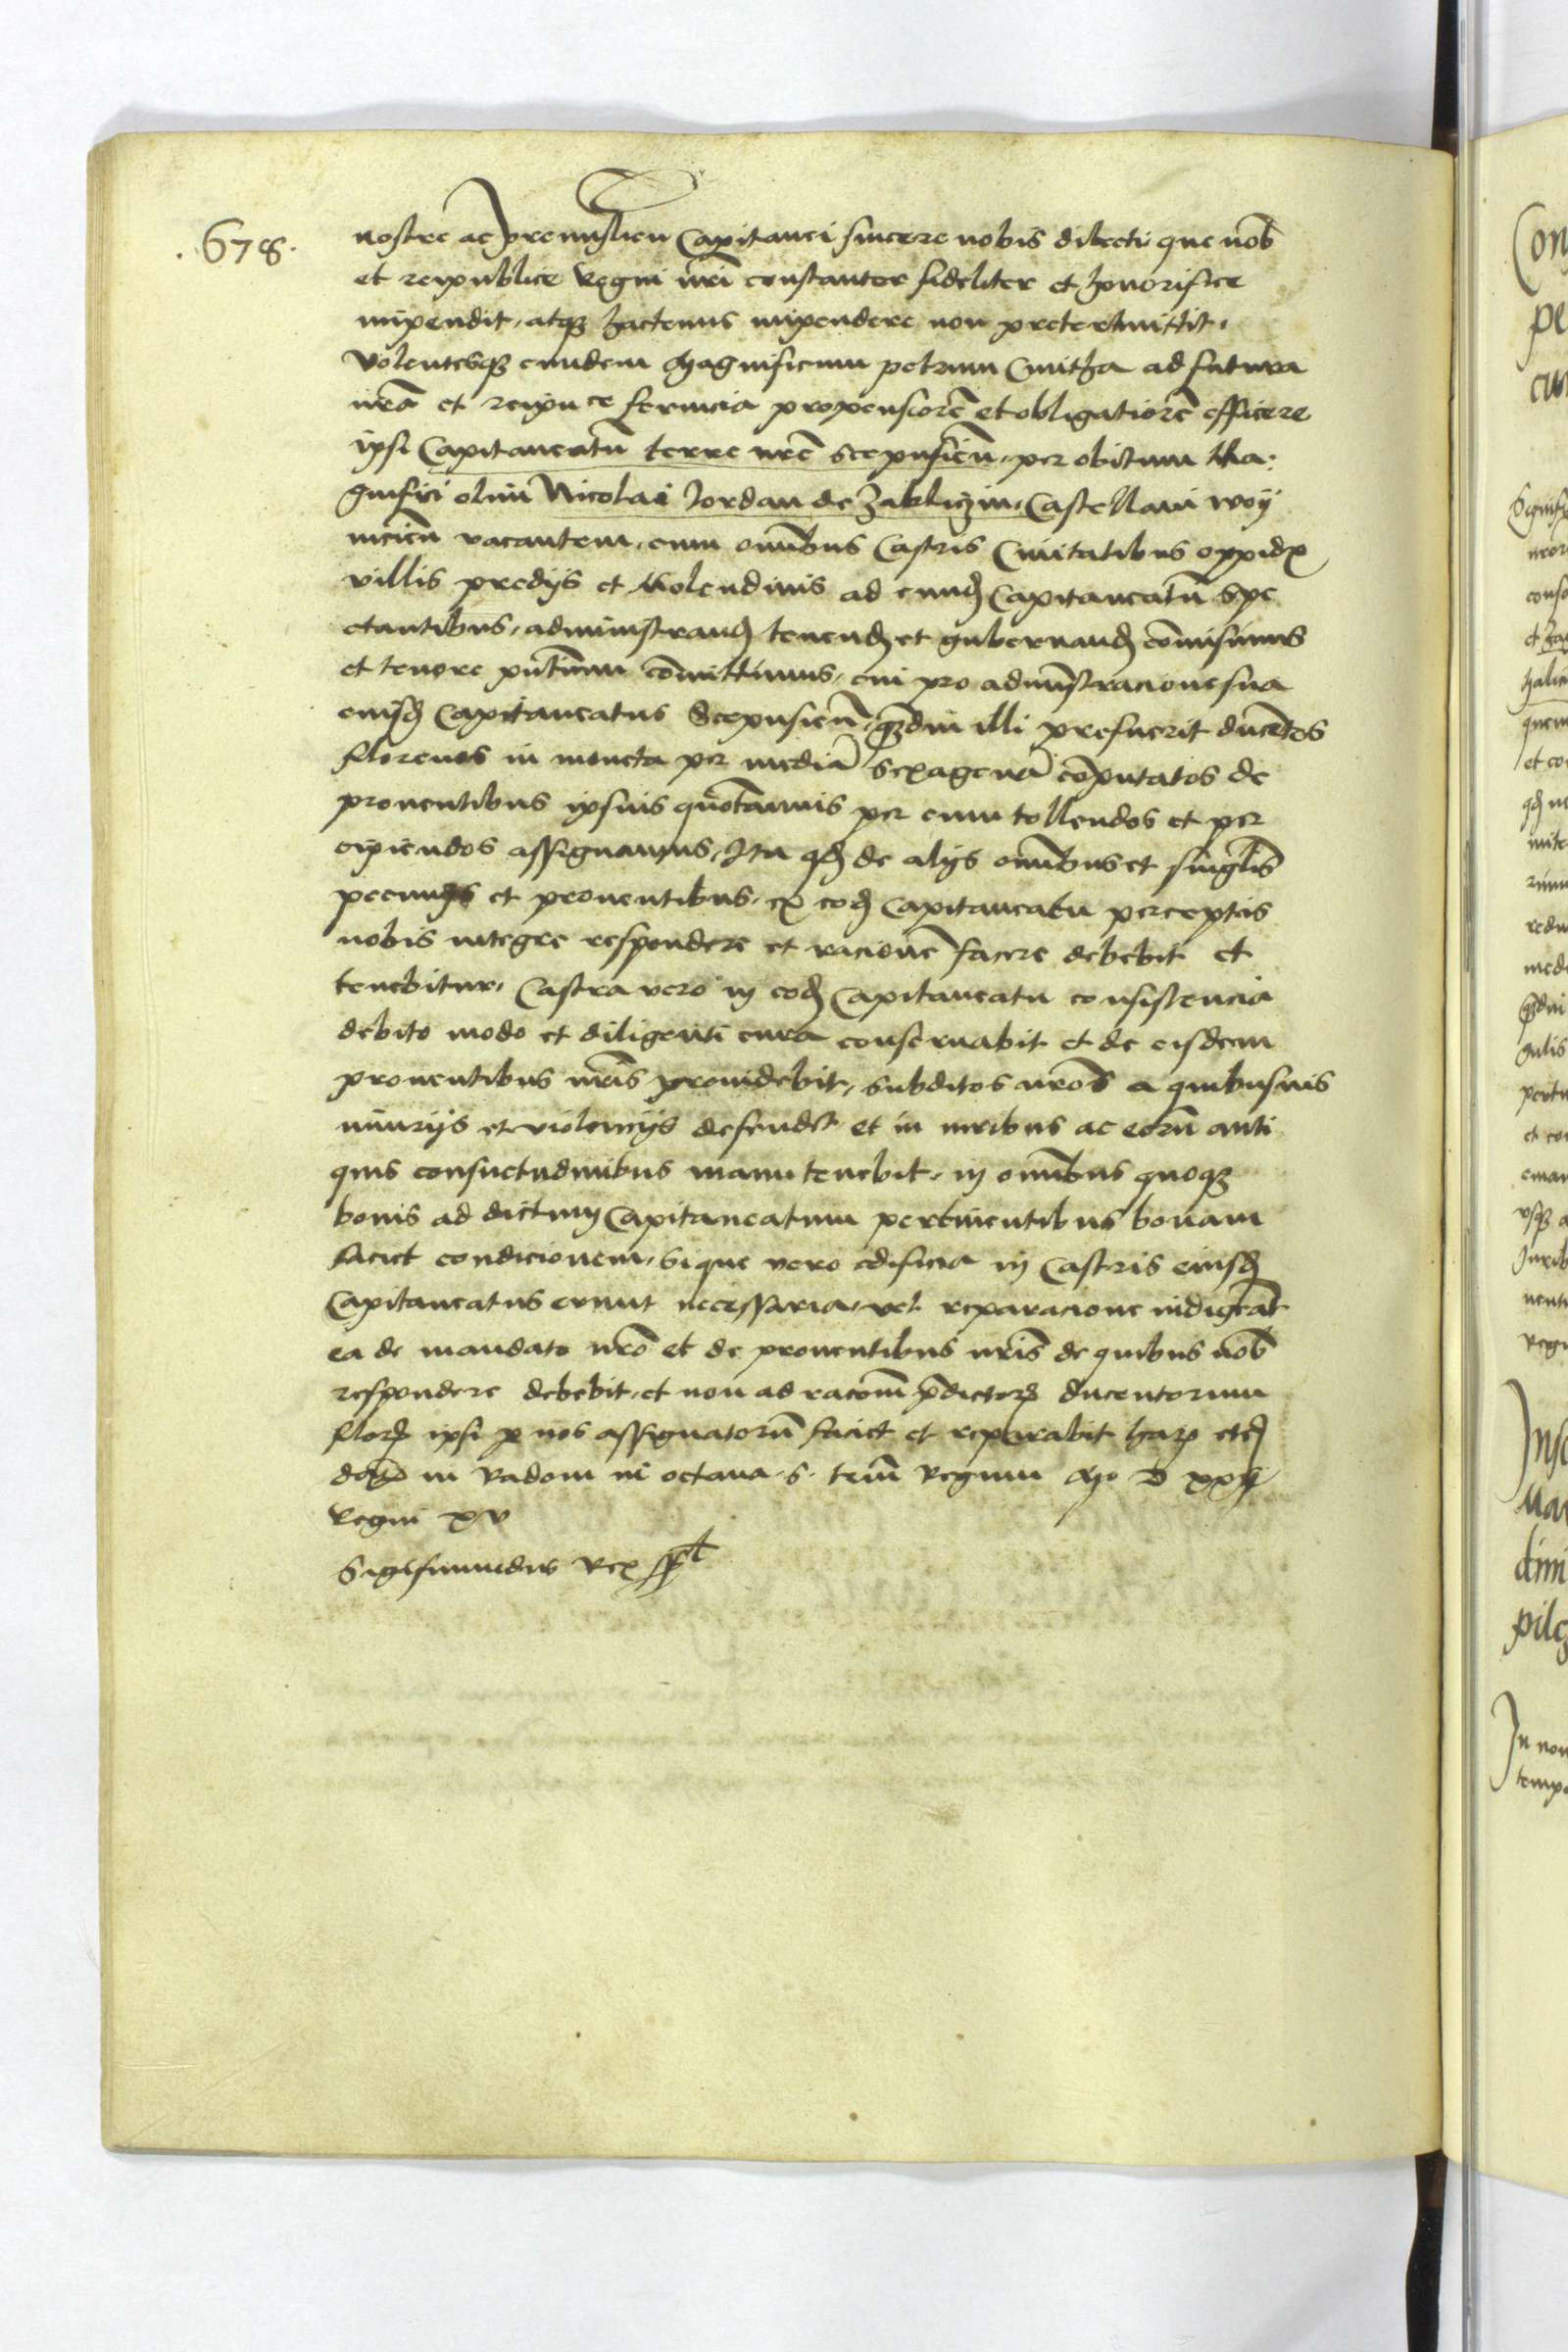 .678.
nostre ac premislien Capitanei sincere nobis dilecti que nob̄
et reipublice Regni nr̄i constanter fideliter et honorifice
impendit, atq3 hactenus impendere non pretermittit.
Volentesq3 eundem Magnificum petrum Cmitha ad futura
nr̄a et reipu ce seruicia propensiorē et obligatiorē efficere
ipsi Capitaneatū terre nr̄e scepusien̄, per obitum Ma-
gnifici olim Nicolai Jordan de Zakliczin, Castellani woy
niciēn vacantem, cum om̄ibus Castris Ciuitatibus oppidis
villis predijs et Molendinis ad eund Capitaneatū spe
ctantibus, administrand tenend et gubernand com̄isimus
et tenore pn̄tium com̄ittimus, cui pro administracione sua
eiusd Capitaneatus Scepusien̄, q̄3diu illi prefuerit ducētos
florenos in moneta per mediā sexagenā cōputatos de
prouentibus ipsius quotannis per eum tollendos et per
cipiendos assignamus, Ita qd de alijs om̄ibus et singlis̄
pecunijs et prouentibus, ex eod Capitaneatu perceptis
nobis integre respondere et racionē facere debebit et
tenebitur, Castra vero in eod Capitaneatu consistencia
debito modo et diligenti cura conseruabit et de eisdem
prouentibus nr̄is prouidebit, subditos nr̄os a quibusuis
iniurijs et violencijs defendet et in iuribus ac eorū anti
quis consuetudinibus manutenebit, in om̄ibus quoq3
bonis ad dictum Capitaneatum pertinentibus bonam
faciet condicionem, Si que vero edificia in Castris eiusd
Capitaneatus erunt necessaria, vel reparacione indigeāt
ea de mandato nr̄o et de prouentibus nr̄is de quibus nob̄
respondere debebit, et non ad racōm p̄dictor ducentorum
flor ipsi p nos assignatorū faciet et reparabit har etc
dat in Radom in octaua .S. triū Regum Año D xxij
Regni xv
Sigismundus Rex sst